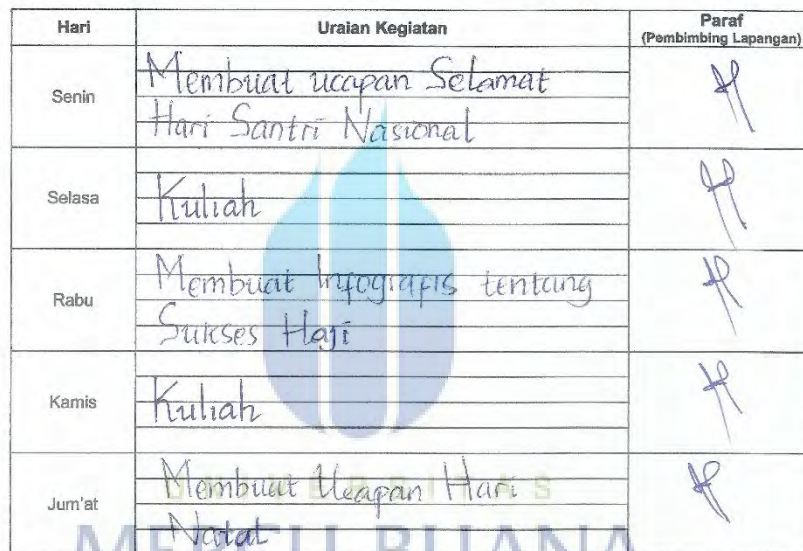 Hari Uraian Kegiatan Paraf
(Pembimbing Lapangan)
Senin
Membuat ucapan Selamat
Hari Santri Nasional
Selasa
Kuliah
Rabu
Membuat Infografis tentang
Sukses Haji
Kamis
Kuliah
Jum'at
Membuat Ucapan Hari
Natal
UNIVERSITAS
MERCU BUANA